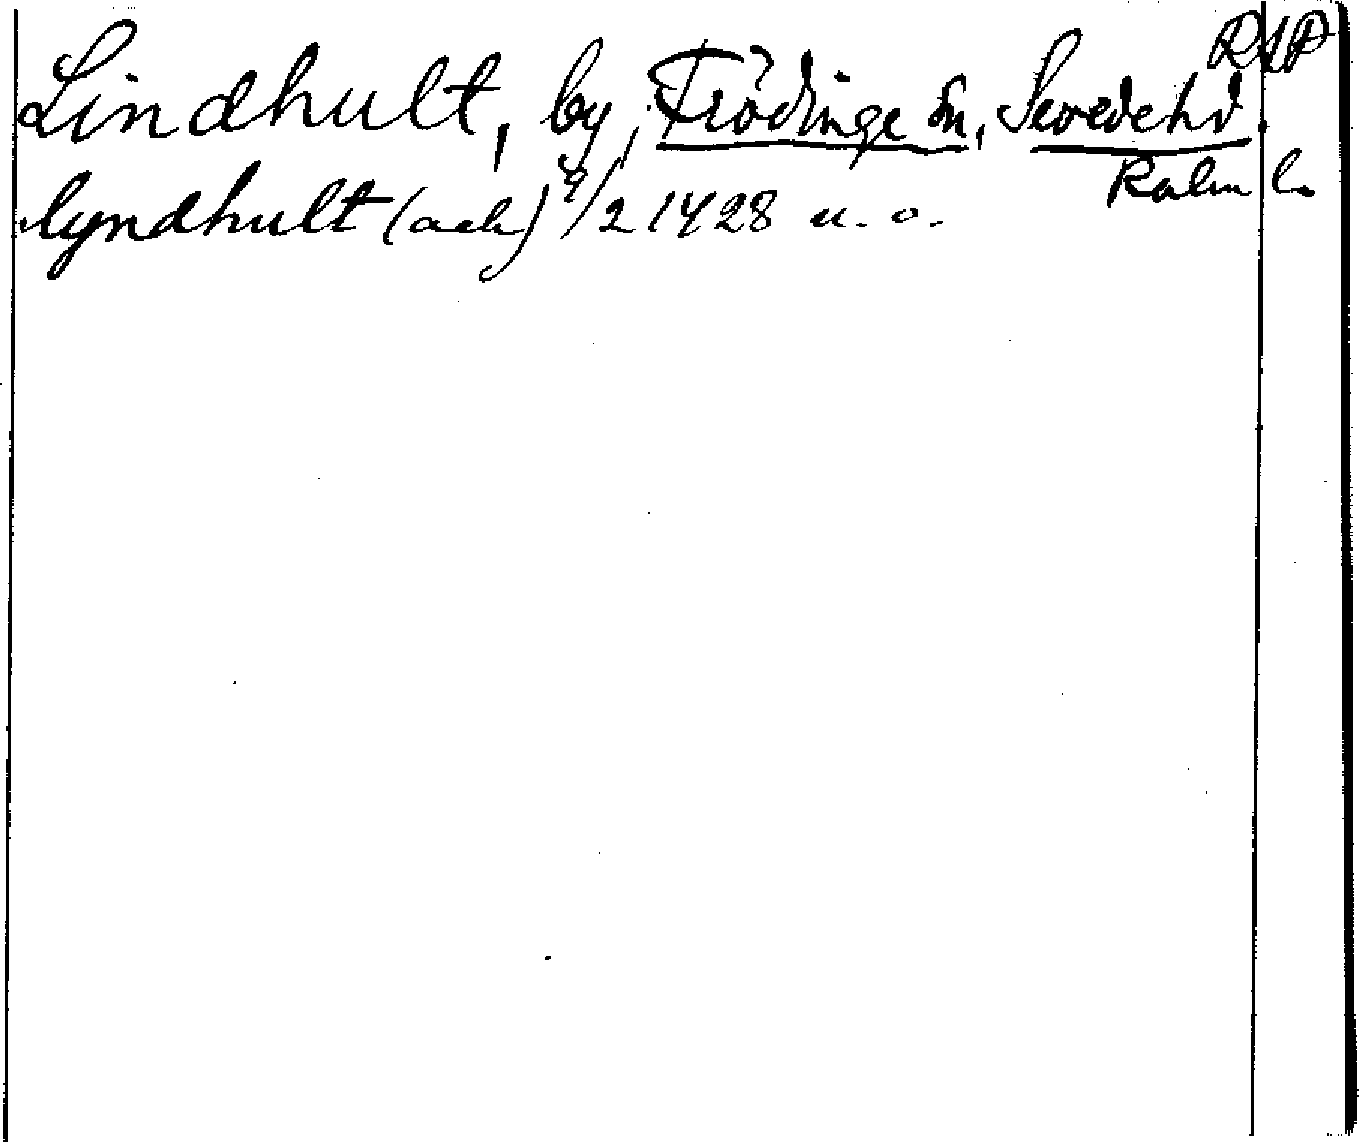 RAP
Lindhult, by, Frödinge sn, Sevedehd
Kalm l.
lyndhult (ack) 9/2 1428 u. o.